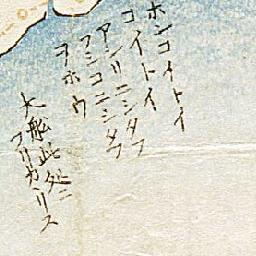 ホンコイトイ
コイトイ
アシリニシタフ
フシコニシタフ
ヲホウ
大船此処ニ
フリカヽリス